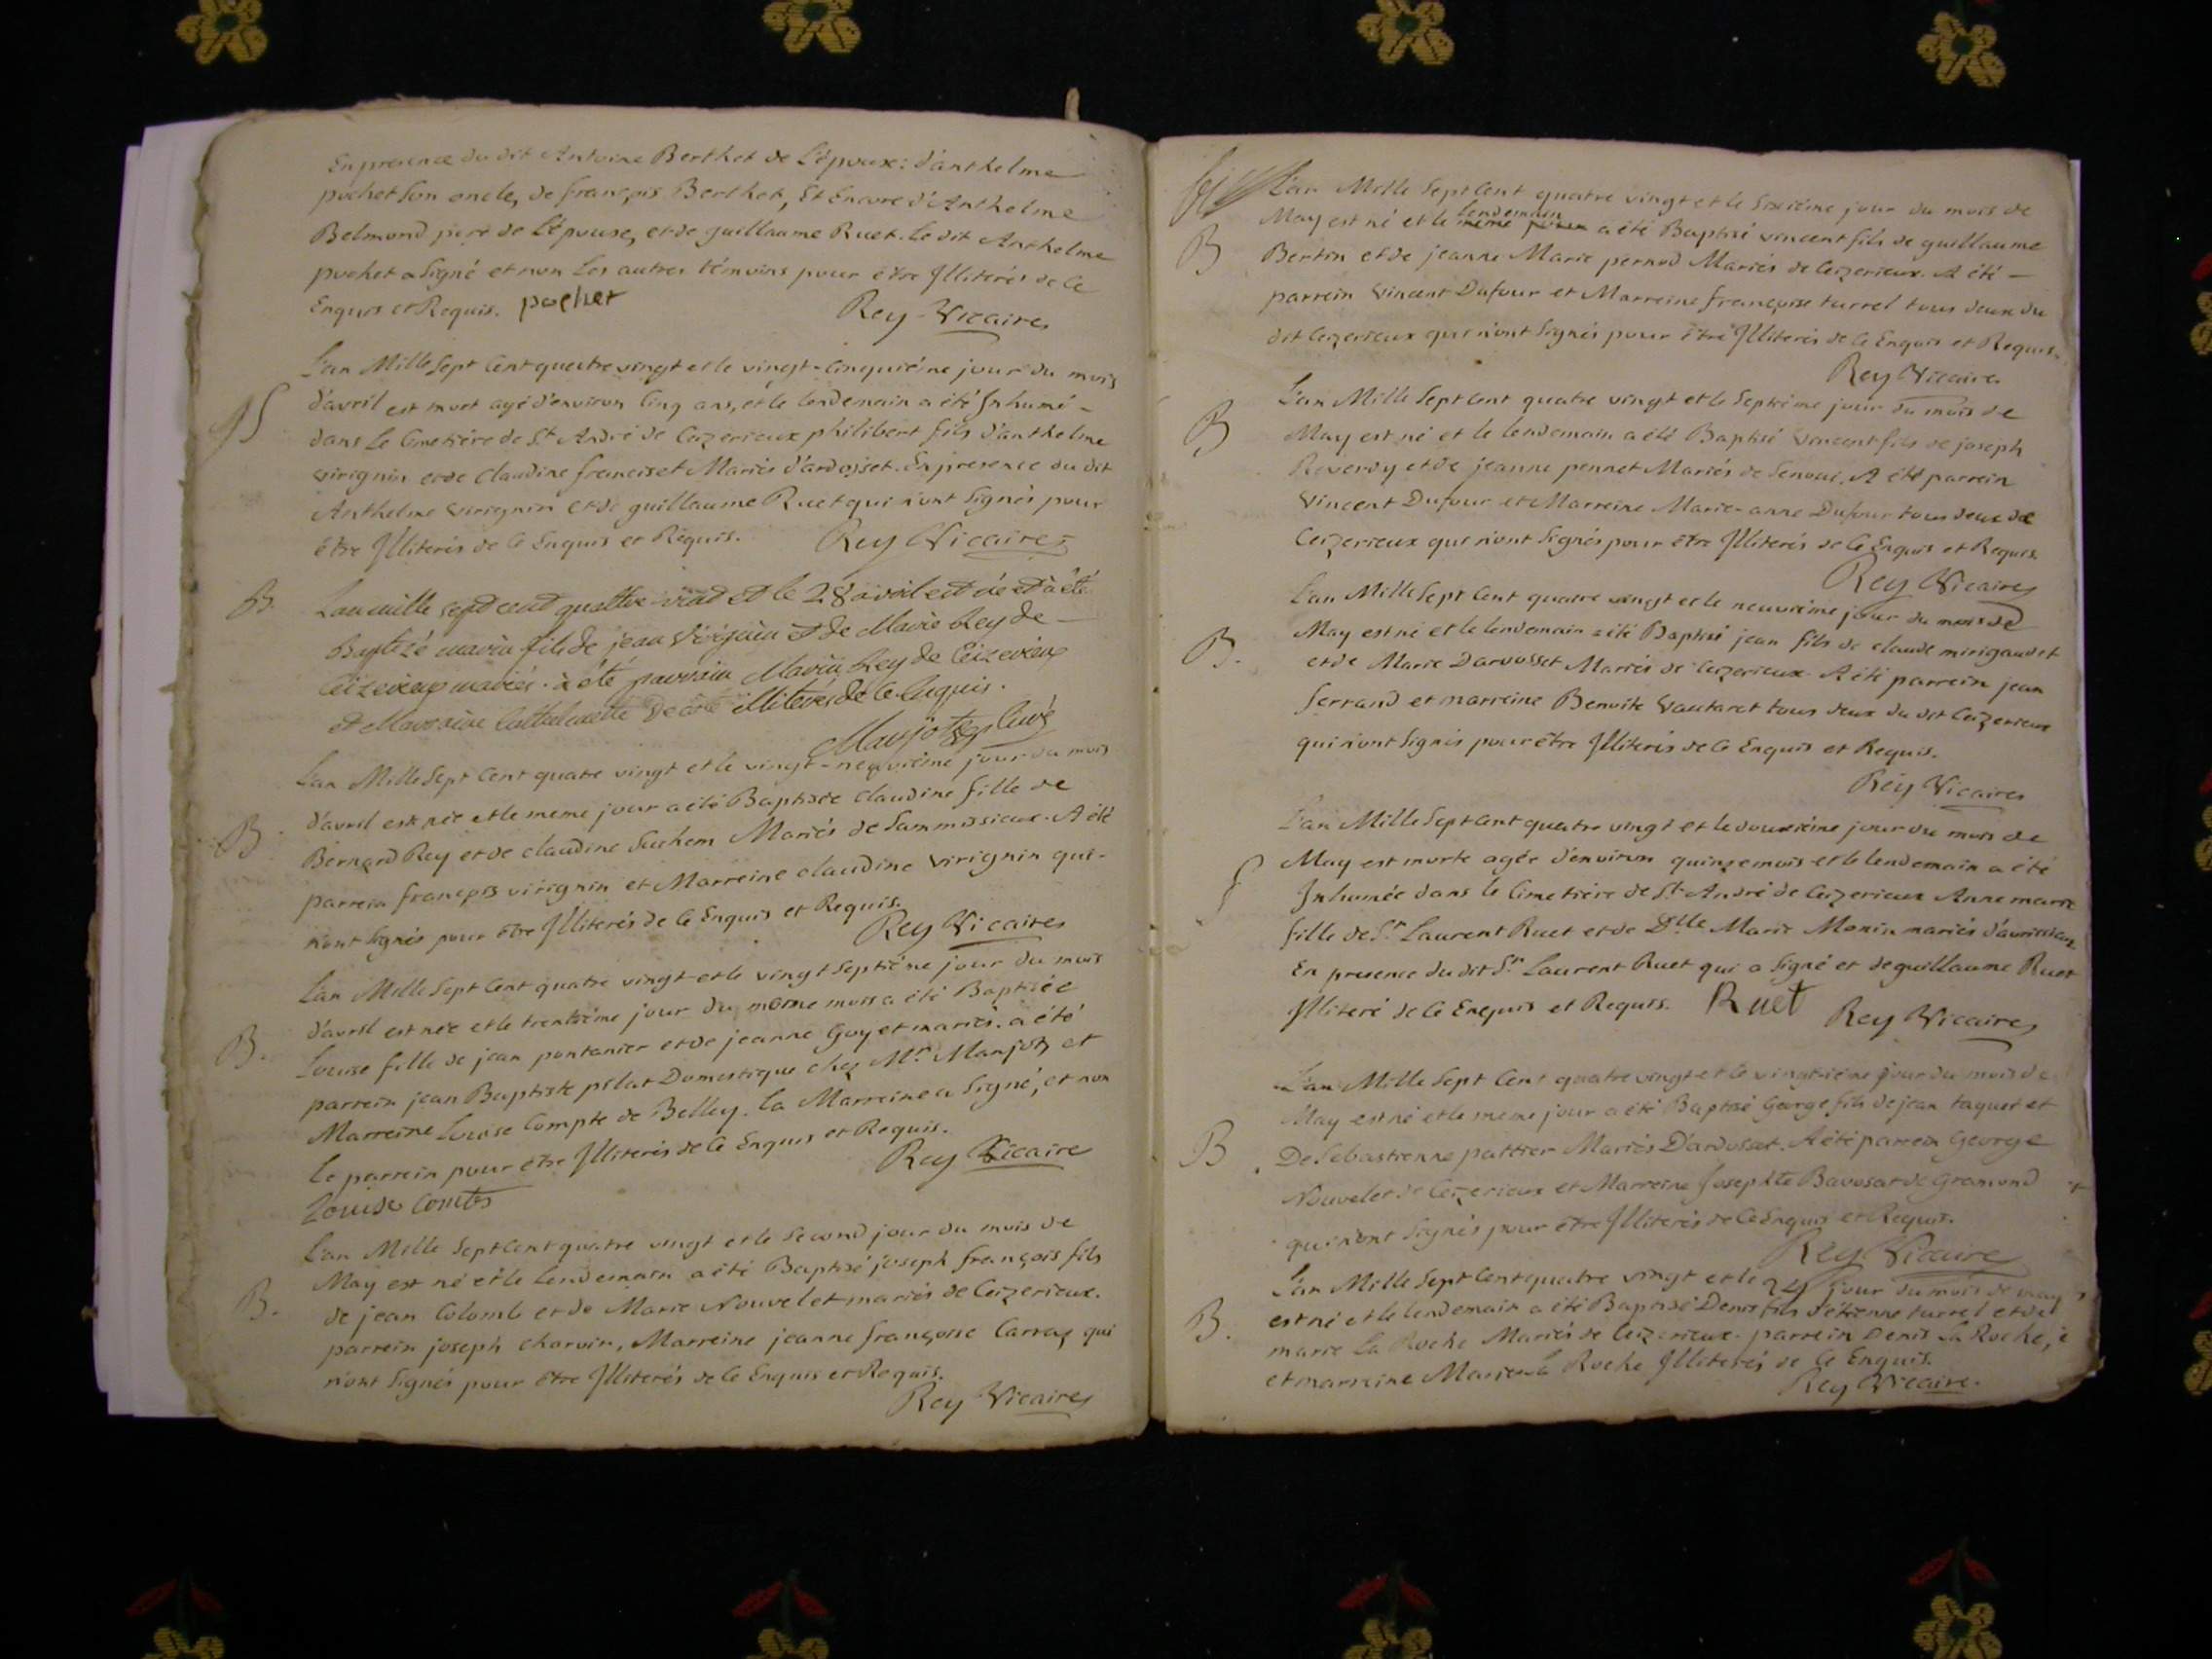 En presence du dit Antoine Berthet de l'époux: d'anthelme
pochet son oncle, de françois Berthet, Et Encore d'Anthelme
Belmond pere de l'épouse, et de guillaume Ruet. Le dit Anthelme
pochet a signé et non Les autres témoins pour être Illiterés de ce
Enquis et Requis. pochet
Rey Vicaire
L'an Mille Sept Cent quatre vingt et le vingt-Cinquiéme jour du mois
d'avril est mort agé d'environ Cinq ans, et le lendemain a été Inhumé -
S
dans Le Cimetiére de St André de Ceizerieux philibert fils d'anthelme
virignin et de Claudine franciset Mariés d'ardosset. En presence du dit
Anthelme virignin et de guillaume Ruet qui n'ont Signés pour
être Illiterés de Ce Enquis et Requis. Rey Vicaire
B. L'an mille sept cent quattre vint et le 28 avril est né et à été
Baptizé marin fils de jean Virignin et de Marie Rey de
Ceizerieux mariés. à été parrain Marin Rey de Ceizerieux
et Marraine illiterés de ce Enquis.
Marjotz Curé
L'an Mille Sept Cent quatre vingt et le vingt-neuviéme jour du mois
d'avril est née et le meme jour a été Baptisée Claudine fille de
B. Bernard Rey et de Claudine Suchem Mariés de Sammissieux. A été
parrein françois virignin et Marreine Claudine virignin qui-
n'ont signés pour être Illiterés de Ce Enquis et Requis.
Rey Vicaire
L'an Mille Sept Cent quatre vingt et le vingt Septiéme jour du mois
d'avril est née et le trentiéme jour du même mois a été Baptisée
B. Louise fille de jean pontanier et de jeanne Goyet mariés. a été
parrein jean Baptiste pilat Domestique chez Mr. Marjotz et
Marreine Louise Compte de Belley. La Marreine a Signé, et non
Le parrein pour être Illiterés de Ce Enquis et Requis.
Rey Vicaire
Louise Comtes
L'an Mille Sept Cent quatre vingt et le Second jour du mois de
May est né et le lendemain a été Baptisé joseph françois fils
B. de jean Colomb et de Marie Nouvelet mariés de Ceizerieux.
parrein joseph charvin, Marreine jeanne françoise Carraz qui
n'ont Signés pour être Illiterés de Ce Enquis et Requis.
Rey Vicaire
L'an Mille Sept Cent quatre vingt et le Sixiéme jour du mois de
lendemain
May est né et le même jour a été Baptisé vincent fils de guillaume
B Bertin et de jeanne Marie pernod Mariés de Ceizerieux. A été -
parrein Vincent Dufour et Marreine françoise turrel tous deux du
dit Ceizerieux qui n'ont Signés pour être Illiterés de Ce Enquis et Requis.
Rey Vicaire
L'an Mille Sept Cent quatre vingt et le Septiéme jour du mois de
B May est né et le lendemain a été Baptisé Vincent fils de joseph
Reverdy et de jeanne pennet Mariés de Senoui. A été parrein
Vincent Dufour et Marreine Marie-anne Dufour tous deux de
Ceizerieux qui n'ont Signés pour être Illiterés de Ce Enquis et Requis.
Rey Vicaire
L'an Mille Sept Cent quatre vingt et le neuviéme jour du mois de
B. May est né et le lendemain a été Baptisé jean fils de claude mirigaudet
et de Marie Darvosset Mariés de Ceizerieux. A été parrein jean
Serrand et marreine Benoite Vautaret tous deux du dit Ceizerieux
qui n'ont Signés pour être Illiterés de Ce Enquis et Requis.
Rey Vicaire
L'an Mille Sept Cent quatre vingt et le douziéme jour du mois de
May est morte agée d'environ quinze mois et le lendemain a été
S Inhumée dans le Cimetiére de St André de Ceizerieux Anne marie
fille de Sr. Laurent Ruet et de Dlle Marie Monin mariés d'avrissieux
En presence du dit Sr. Laurent Ruet qui a Signé et de guillaume Ruet
Illiteré de Ce Enquis et Requis. Ruet Rey Vicaire
L'an Mille Sept Cent quatre vingt et le vingtiéme jour du mois de
May est né et le même jour a été Baptisé George fils de jean taquet et
B. De Sebastienne pattier Mariés D'ardosset. A été parrein George
Nouvelet de Ceizerieux et Marreine Josephte Bavosat de Gramond
qui n'ont Signés pour être Illiterés de Ce Enquis et Requis.
Rey Vicaire
L'an Mille Sept Cent quatre vingt et le 24 jour du mois de may
B. est né et le lendemain a été Baptisé Denis fils d'étienne turrel et de
marie La Roche Mariés de Ceizerieux. parrein Denis La Roche,
et marreine Marie La Roche Illiterés de Ce Enquis.
Rey Vicaire.